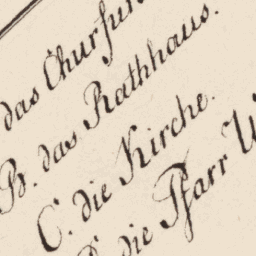 das Churfür
B. das Rathhaus.
C. die Kirche.
die Pfarr W